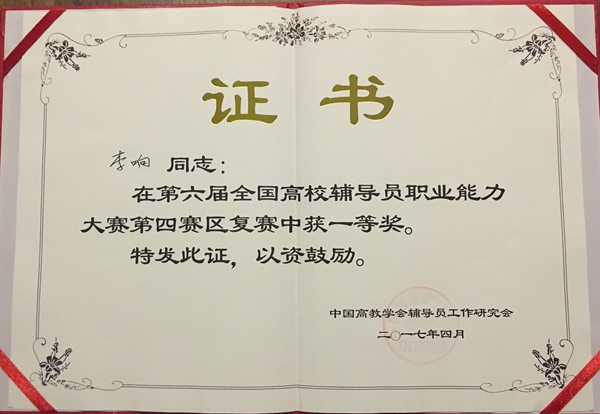 证书
李响 同志：
在第六届全国高校辅导员职业能力
大赛第四赛区复赛中获一等奖。
特发此证，以资鼓励。
中国高教学会辅导员工作研究会
二〇一七年四月